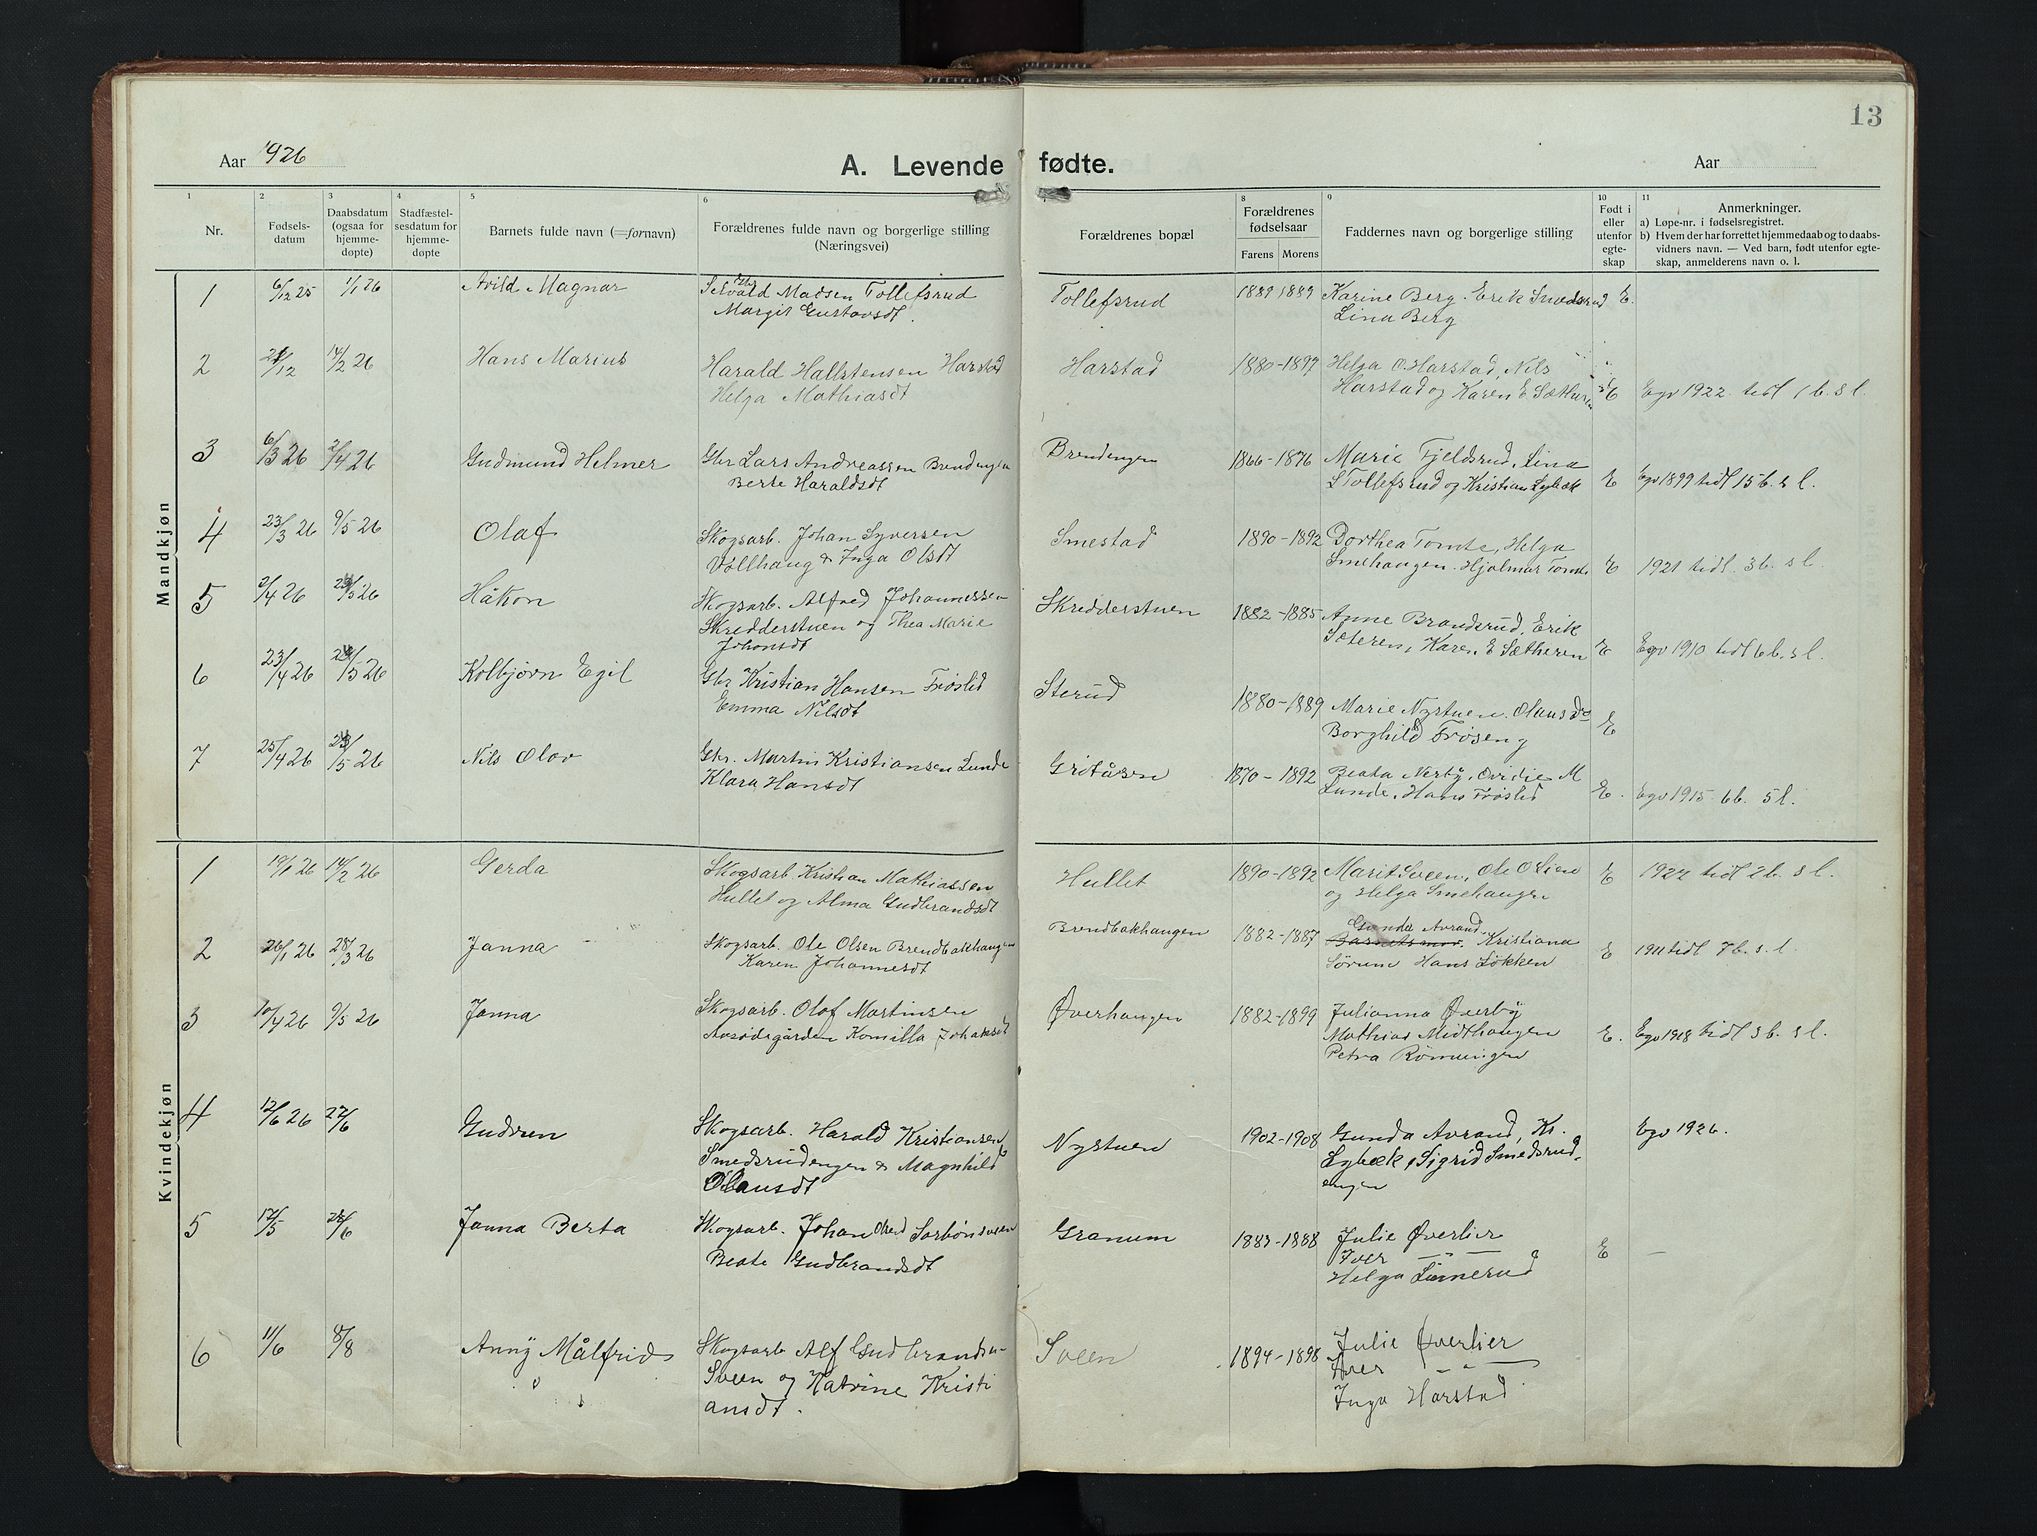 13
Aar 1926
A. Levende fødte.
Aar
1 2 3 4 5 6 7 8 9 10 11
Nr.
Fødsels-
datum
Daabsdatum
(ogsaa for
hjemme-
døpte)
Stadfæstel-
sesdatum for
hjemme-
døpte
Barnets fulde navn (=fornavn)
Forældrenes fulde navn og borgerlige stilling
(Næringsvei)
Forældrenes bopæl
Forældrenes
fødselsaar
Farens Morens
Faddernes navn og borgerlige stilling
Født i
eller
utenfor
egte-
skap
Anmerkninger.
a) Løpe-nr. i fødselsregistret.
b) Hvem der har forrettet hjemmedaab og to daabs-
vidners navn. — Ved barn, født utenfor egte-
skap, anmelderens navn o. l.
Mandkjøn
1 6/12 25 1/1 26 Arild Magnar
Madsen Tollefsrud
Margit Gustavsdt.
Tollefsrud 1889 1889 Karine Berg. Erik Smedsrud E.
Lina Berg
2 21/12 14/2 26 Hans Marius
Harald Hallstensen Harstad
Helga Mathiasdt
Harstad 1880-1897 Helga O Harstad, Nils
Harstad og Karen E Sætheren E Egv 1922 tidl 1 b. s l.
3 6/3 26 2/4 26 Gudmund Helmer
Gbr Lars Andreassen Brendengen
Berte Haraldsdt
Brendengen 1866-1876 Marie Fjeldsrud, Lina
S Tollefsrud og Kristian Lybæk E Egv 1899 tidl 15 b. s l.
4 23/3 26 9/5 26 Olaf
Skogsarb. Johan Syversen
Vollhaug & Inga Olsdt
Smestad 1890-1892 Dorthea Tomte, Helga
Smehaugen. Hjalmar Tomte E 1921 tidl. 3 b. s l.
5 2/4 26 24/5 26 Håkon
Skogsarb. Alfred Johannessen
Skredderstuen og Thea Marie
Johansdt
Skredderstuen 1882-1885 Anne Brandsrud, Erik
Sæteren, Karen E Sætheren E Egv 1910 tidl 6 b. s l.
6 23/4 26 24/5 26 Kolbjørn Egil
Gbr Kristian Hansen Frøslid
Emma Nilsdt
Sterud 1880-1889 Marie Nystuen. Olaus do
Borghild Frøseng E
7 25/4 26 24/5 26 Nils Olav
Gbr. Martin Kristiansen Lunde
Klara Hansdt
Gråtåsen 1870-1892 Beata Nerby, Ovidie M
Lunde, Hans Frøslid E. Egv 1915 6 b. s l.
Kvindekjøn
1 19/1 26 14/2 26 Gerda
Skogsarb Kristian Mathiassen
Hullet og Alma Gudbrandsdt
Hullet 1890-1892 Marit Sveen, Ole O Lien
og Helga Smehaugen E 1922 tidl 2 b. s l.
2 26/1 26 28/3 26 Janna
Skogsarb. Ole Olsen Brendbakhaugen
Karen Johannesdt
Brendbakhaugen 1882-1887 Gunda Avrand
Barnets mor, Kristiana
Sørum Hans Løkken E 1911 tidl 7 b. s. l.
3 10/4 26 9/5 26 Janna
Skogsarb. Olaf Martinsen
Avsødegården Komilla Johansdt
Øverhaugen 1882-1899 Julianna Øverby
Mathias Midthaugen
Petra Rønningen E. Egv 1918 tidl 3 b. s l.
4 12/6 26 27/6 Gudrun
Skogsarb. Harald Kristiansen
Smedsrudengen & Magnhild
Olausdt
Nystuen 1902-1908 Gunda Avrand, Kr.
Lybæk, Sigrid Smedsrud,
engen
Egv 1926.
5 12/5 28/6 Janna Berta
Skogsarb. Johan
Beate Gudbrandsdt
Granum 1883-1888 Julie Øverlier
Iver — " —
Helga Linnerud E —
6 11/6 8/8 Anny Målfrid
Skogsarb Alf Gudbrandsn
Sveen og Katrine Kristi
ansdt.
Sveen 1894-1898 Julie Øverlier
Iver — " —
Inga Harstad